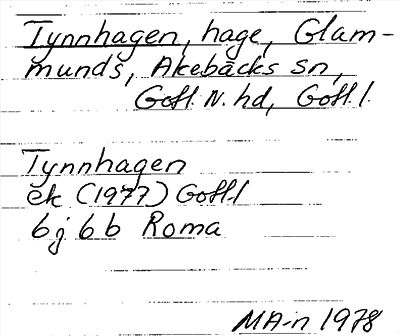 Tynnhagen, hage, Glam-
munds, Akebäcks sn,
Gotl. N. hd, Gotl. l.
Tynnhagen
ek (1977) Gotl. l
6j 6b Roma
MA-n 1978